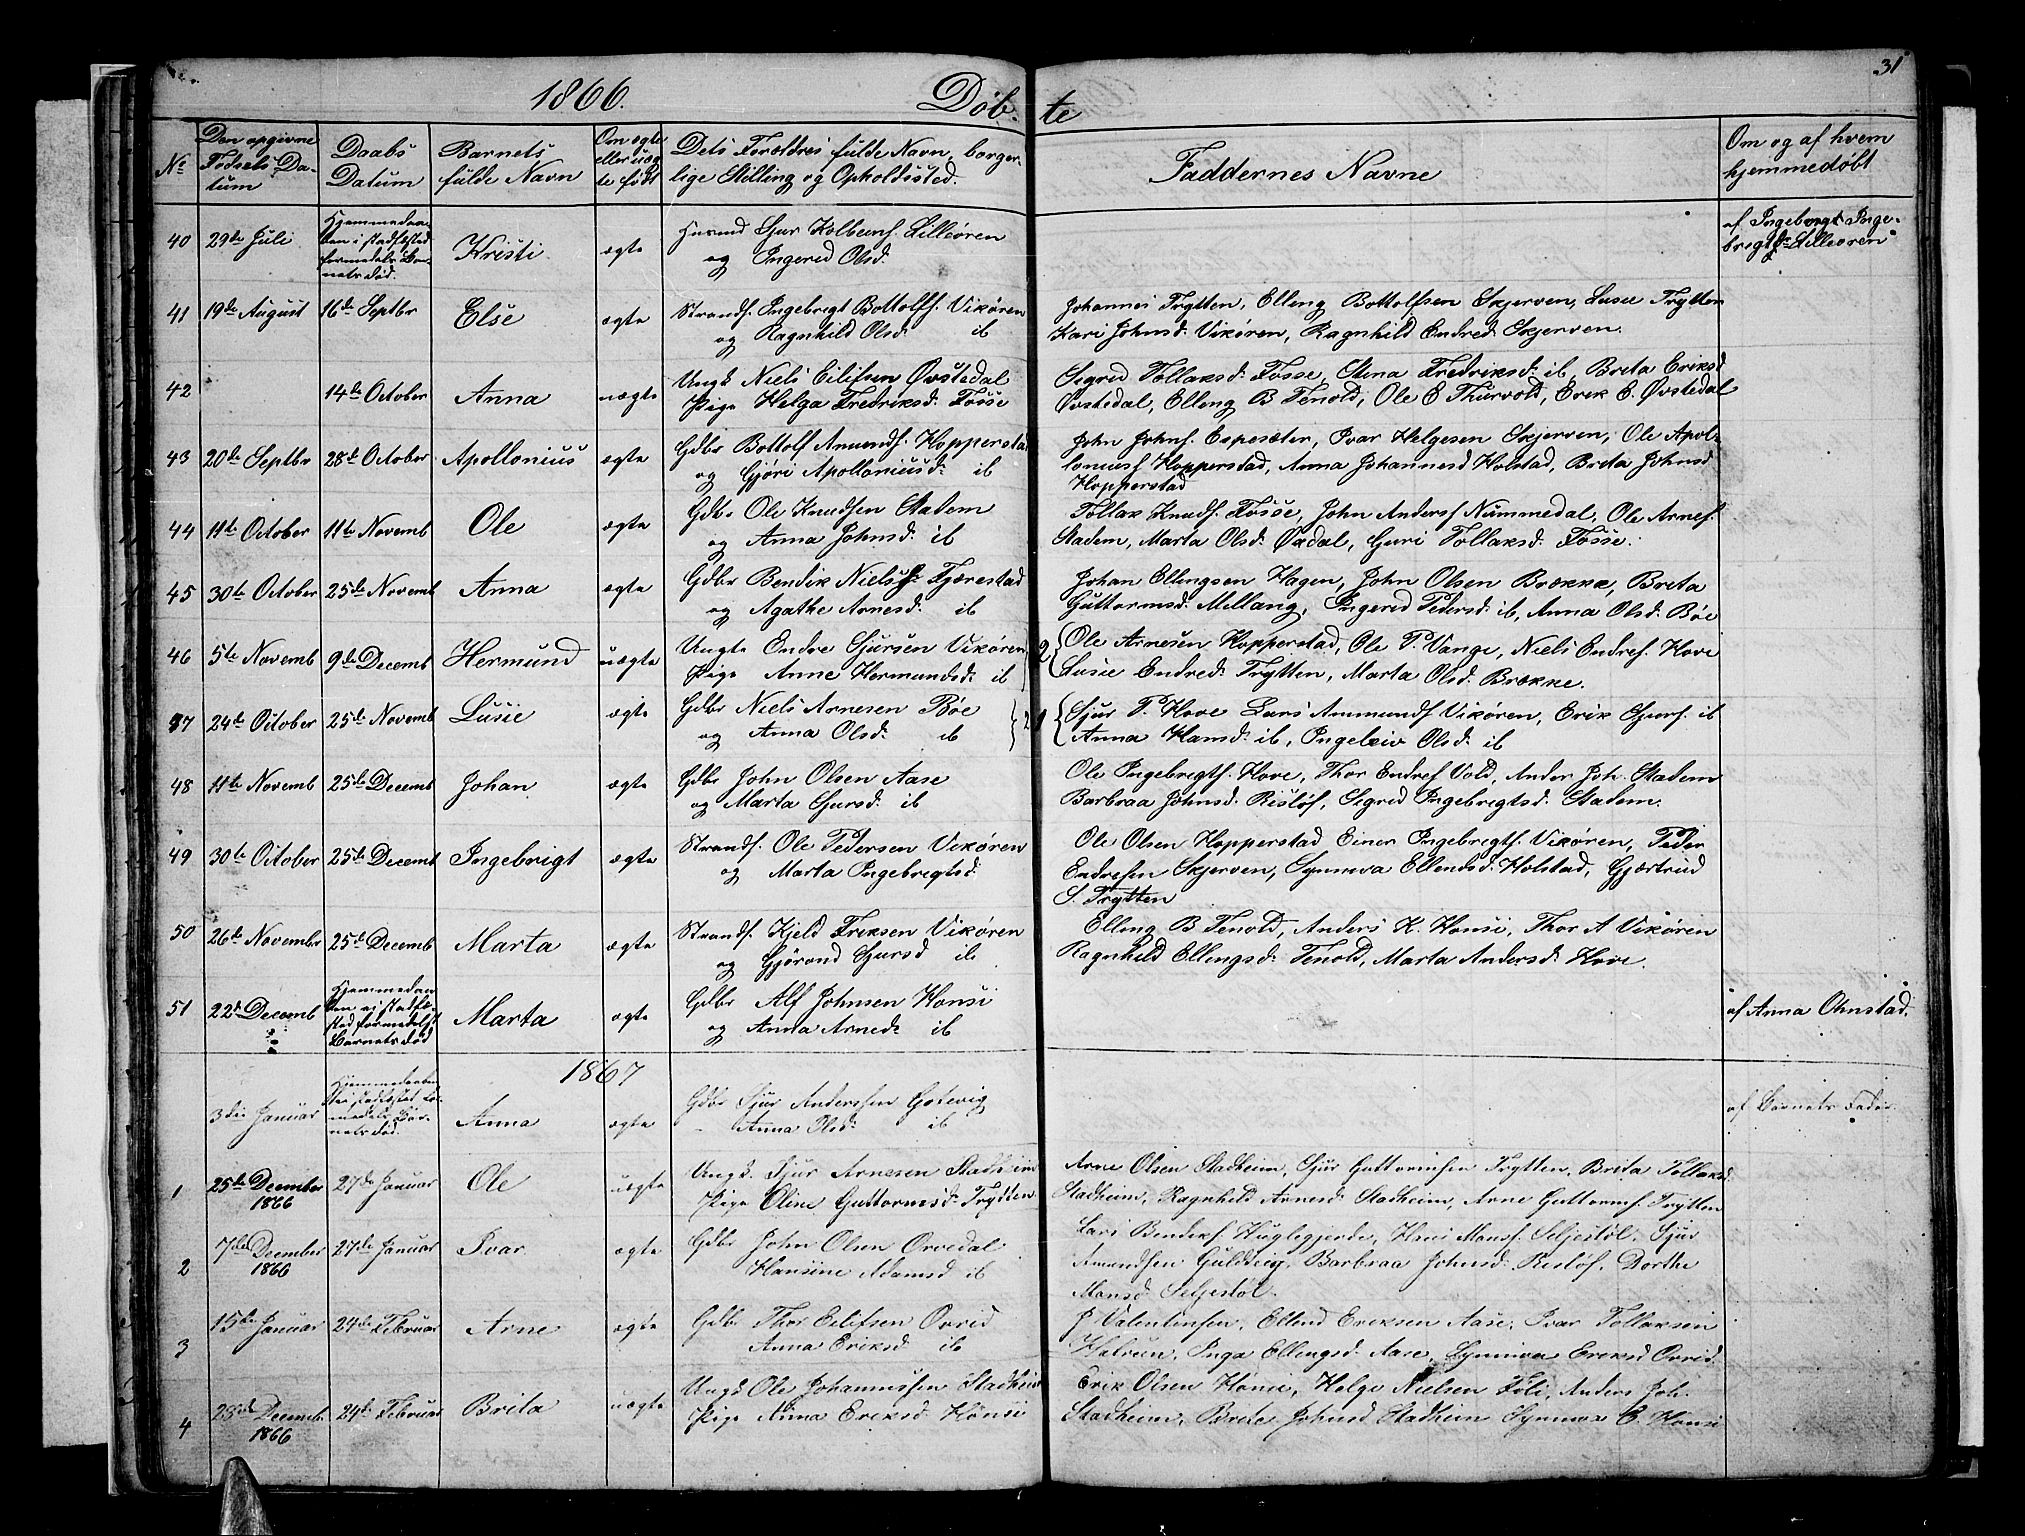 1866. Døb- te 31
No
Den opgivne Fødsels Datum
Daabs Datum
Barnets fulde Navn
Om ægte eller uægte født
Dets Forældres fulde Navn, borgerlige Stilling og Opholdssted.
Faddernes Navne
Om og af hvem hjemmedøbt
40 29de Juli Hjemmedaaben i stadfæsted formedels Barnets død. Kristi ægte Husmd Sjur Kolbeins. Lilleøren
og Ingerid Olsd.
af Ingeborg Ingebrigtsd. Lilleøren
41 19de August 16de Septbr Else ægte Strands. Ingebrigt Bottolfs. Vikøren
og Ragnhild Olsd. ib
Johannes Trytten, Elling Bottolfsen Skjerven, Lusie Trytten
Kari Johnsd. Vikøren, Ragnhild Endresd. Skjerven.
42 14de October Anna uægte Ungk. Niels Eilifsen Øvstedal
Pige Helga Fredriksd. Fosse
Sigrid Tollaksd. Fosse, Stina Fredriksd. ib, Brita Eriksd
Øvstedal, Elling B Tenold, Ole E Thurvold, Erik E. Øvstedal
43 20de Septbr 28de October Apollonius ægte Gdbr Bottolf Amunds. Hopperstad
og Gjøri Apolloniusd. ib
John Johns. Espesæter, Ivar Helgesen Skjerven, Ole Apol-
loniuss Hopperstad, Anna Johannesd Holstad, Brita Johnsd
Hopperstad
44 11te October 11te Novemb Ole ægte Gdbr Ole Knudsen Stadem
og Anna Johnsd. ib
Tollak Knuds. Fosse, John Anders Nummedal, Ole Arnes.
Stadem, Marta Olsd. Øvdal, Guri Tollaksd. Fosse.
45 30te October 25de Novemb Anna ægte Gdbr Bendik Nielss. Fjærestad
og Agathe Arnesd. ib
Johan Ellingsen Hagen, John Olsen Brække, Brita
Guttormsd. Mellang, Ingerid Pedersd. ib, Anna Olsd. Bøe
46 5te Novemb 9de Decemb Hermund uægte Ungk Endre Sjursen Vikøren
Pige Anne Hermundsd. ib
2 Ole Arnesen Hopperstad, Ole P. Vange, Niels Endres. Hove
Lusie Endred. Trytten, Marta Olsd. Brække.
47 24de October 25de Novemb Lusie ægte Gdbr Niels Arnesen Bøe
og Anna Olsd. ib
1 Sjur P. Hove Lars Ammunds Vikøren, Erik Sjurs. ib
Anna Hansd. ib, Ingeleiv Olsd. ib
48 11te Novemb 25de Decemb Johan ægte Gdbr John Olsen Aase
og Marta Sjursd. ib
Ole Ingebrigts. Hove, Thor Endres Vold, Anders Joh. Stadem
Barbraa Johnsd. Risløf, Sigrid Ingebrigtsd. Stadem.
49 30te October 25de Decemb Ingebrigt ægte Strands. Ole Pedersen Vikøren
og Marta Ingebrigtsd.
Ole Olsen Hopperstad Einer Ingebrigts. Vikøren, Peder
Endresen Skjerven, Synneva Ellendsd. Holstad, Gjærtrud
S. Trytten
50 26de November 25de Decemb Marta ægte Strands. Kjeld Eriksen Vikøren
og Gjørond Sjursd ib
Elling B Tenold, Anders K. Hønsi, Thor A Vikøren
Ragnhild Ellingsd. Tenold, Marta Andersd. Hove.
51 22de Decemb Hjemmedaaben ei stadfæsted formedelst Barnets død Marta ægte Gdbr Alf Johnsen Hønsi
og Anna Arned. ib
af Anna Ohnstad.
1867
3die Januar Hjemmedaaben ei stadfæsted formedels Barnets død. Anna ægte Gdbr Sjur Anderssen Gotevig
Anna Olsd. ib
af Barnets Fader.
1 25de December 1866 27de Januar Ole uægte Ungk. Sjur Arnesen Stadheim
Pige Oline Guttormsd. Trytten.
Arne Olsen Stadheim, Sjur Guttormsen Trytten, Brita Tollaksd.
Stadheim, Ragnhild Arnesd. Stadheim, Arne Guttorms. Trytten
2 7de December 1866 27de Januar Ivar ægte Gdbr John Olsen Orvedal
Hansine Adamsd ib
Lars Benders Huglegjerde, Hans Mons. Seljestøl, Sjur
Amundsen Guldteig, Barbraa Johnsd. Risløf, Dorthe
Monsd. Seljestøl.
3 15de Januar 24de Februar Arne ægte Gdbr Thor Eilifsen Ovrid
Anna Eriksd ib
J Valentinsen, Ellend Eriksen Aase, Ivar Tollaksen
Inga Ellingsd. Aase, Synneva Eriksd Ovrid.
4 28de Decemb. 1866 24de Februar Brita uægte Ungk Ole Johannessen Stadheim
Pige Anna Eriksd. Hønsi
Erik Olsen Hønsi, Helge Nielsen Føli, Anders Joh.
Stadheim, Brita Johnsd Stadheim Synnøva E. Hønsi